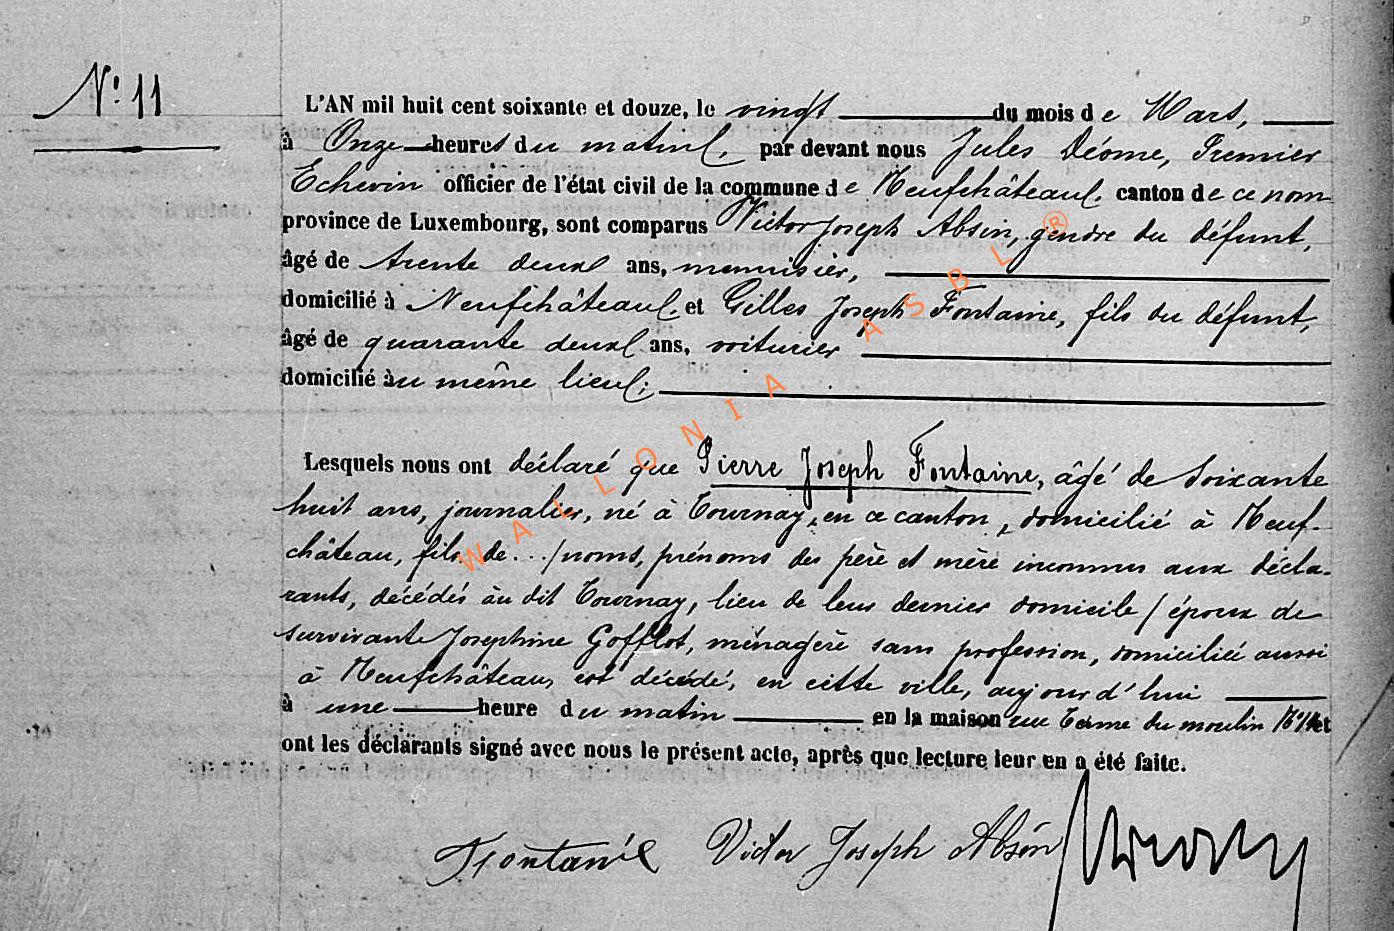 N° 11
L'AN mil huit cent soixante et douze, le vingt du mois de Mars,
à Onze heures du matin, par devant nous Jules Déome, Premier
Echevin officier de l'état civil de la commune de Neufchâteau, canton de ce nom
province de Luxembourg, sont comparus Victor Joseph Absin, gendre du défunt,
âgé de trente deux ans, menuisier,
domicilié à Neufchâteau, et Gilles Joseph Fontaine, fils du défunt,
âgé de quarante deux ans, voiturier
domicilié au même lieu;
Lesquels nous ont déclaré que Pierre Joseph Fontaine, âgé de soixante
huit ans, journalier, né à Tournay, en ce canton, domicilié à Neuf-
château, fils de... (noms, prénoms des père et mère inconnus aux décla-
rants, décédés au dit Tournay, lieu de leur dernier domicile) époux de
survivante Josephine Gofflot, ménagère sans profession, domiciliée aussi
à Neufchâteau, est décédé, en cette ville, aujourd'hui
à une heure du matin en la maison rue du moulin N° et
ont les déclarants signé avec nous le présent acte, après que lecture leur en a été faite.
Fontaine Victor Joseph Absin
WALLONIA ASBL ®